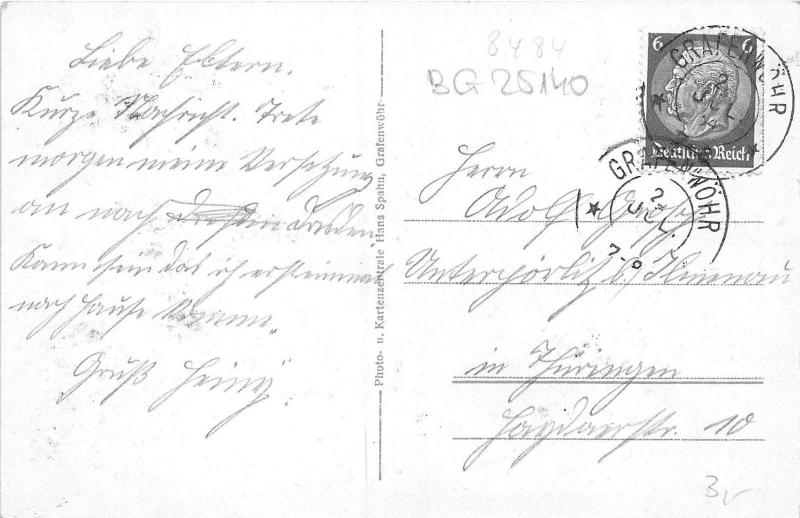 Liebe Eltern.
Kurze Nachricht. Trete
morgen meine Versetzung
an nach Dresden
Kann sein das ich erst einmal
nach Hause komme.
Gruß Heinz.
Photo- u. Kartenzentrale Hans Spahn, Grafenwöhr
8484
BG 25140
6 6
Deutsches Reich
GRAFENWÖHR
2 JUL
GRAFENWÖHR
2 JUL. 7-9
Herrn
Adolf
Unterpörlitz b/Ilmenau
in Thüringen
10